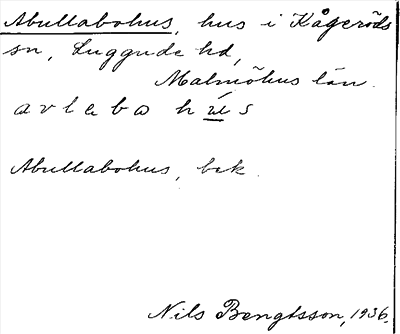 Abullabohus, hus i Kågeröds
sn, Luggude hd,
Malmöhus län.
a v l a b o h ú s
Abullabohus, bek.
Nils Bengtsson, 1936.